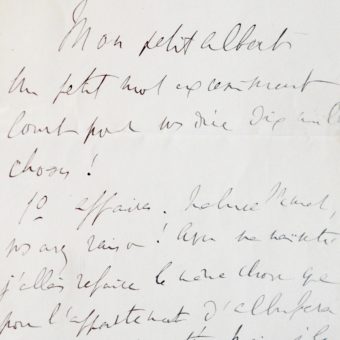 Mon petit Albert
Un petit mot excessivement
court pour vs dire dix mille
choses !
1º affaires.
vs avez raison !
j'allais refaire la même chose que
pour l'appartement d'Albufera